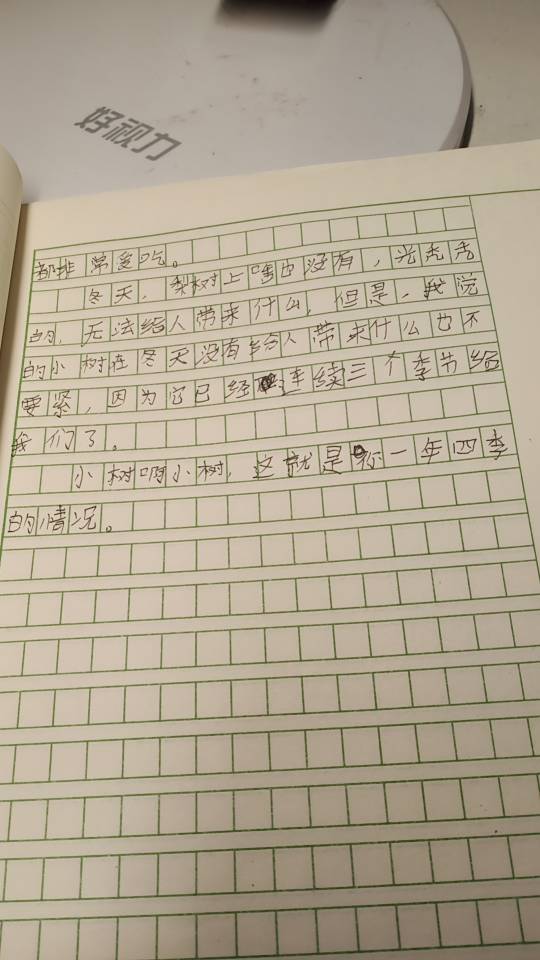 好视力
都非常爱吃。
冬天，梨树上啥也没有，光秃秃
的，无法给人带来什么，但是，我说
的小树在冬天没有给人带来什么也不
要紧，因为它已经连续三个季节给
我们了。
小树啊小树，这就是你一年四季
的情况。